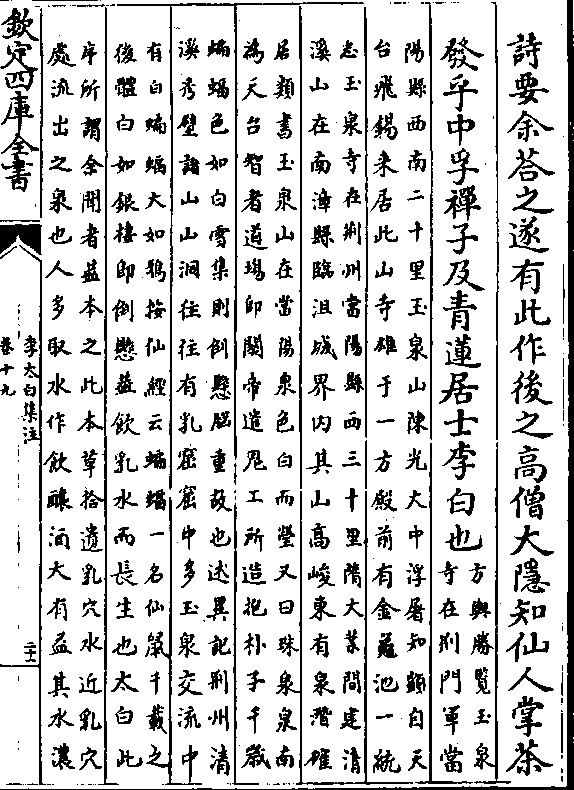 詩要余荅之遂有此作後之高僧大隱知仙人掌茶
發乎中孚禪子及青蓮居士李白也
方輿勝覽玉泉
寺在荆門軍當
陽縣西南二十里玉泉山陳光大中浮屠知顗自天
台飛錫來居此山寺雄于一方殿前有金龜池一統
志玉泉寺在荆州當陽縣西三十里隋大業間建清
溪山在南漳縣臨沮城界内其山高峻東有泉潛確
居類書玉泉山在當陽泉色白而瑩又曰珠泉泉南
為天台智者道塲即關帝遣鬼工所造抱朴子千嵗
蝙蝠色如白雪集則倒懸腦重故也述異記荆州清
溪秀壁諸山山洞往往有乳窟窟中多玉泉交流中
有白蝙蝠大如鴉按仙經云蝙蝠一名仙鼠千載之
後體白如銀棲即倒懸葢飲乳水而長生也太白此
序所謂余聞者葢本之此本草拾遺乳穴水近乳穴
處流出之泉也人多取水作飲釀酒大有益其水濃
欽定四庫全書
李太白集注
卷十九